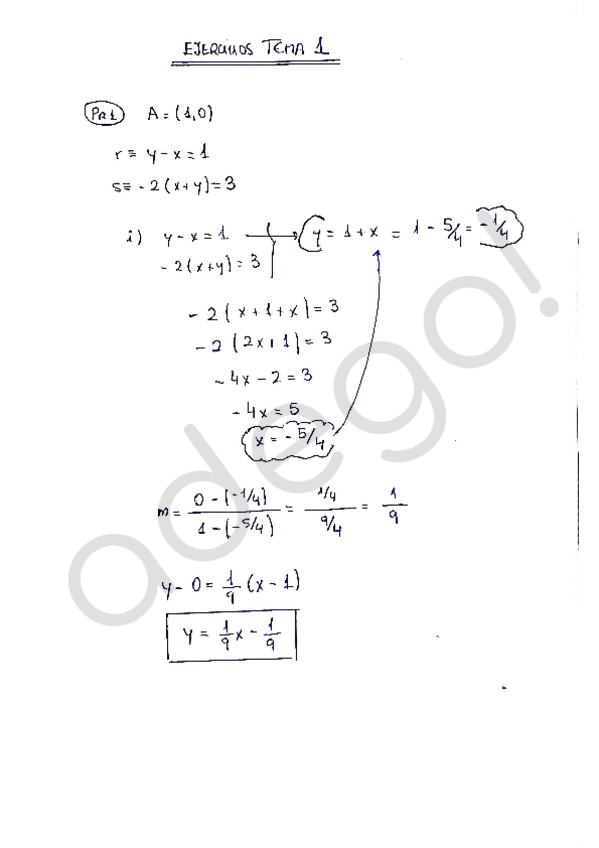 EJERCICIOS TEMA 1
PR1 A = (1,0)
r ≡ y - x = 1
s ≡ - 2(x+y) = 3
i) y - x = 1 → y = 1 + x = 1 - 5/4 = - 1/4
- 2(x+y) = 3
- 2(x+1+x) = 3
- 2(2x+1) = 3
- 4x - 2 = 3
- 4x = 5
x = - 5/4
m = 0 - (-1/4) / 1 - (-5/4) = 1/4 / 9/4 = 1/9
y - 0 = 1/9 (x - 1)
y = 1/9 x - 1/9
adego!